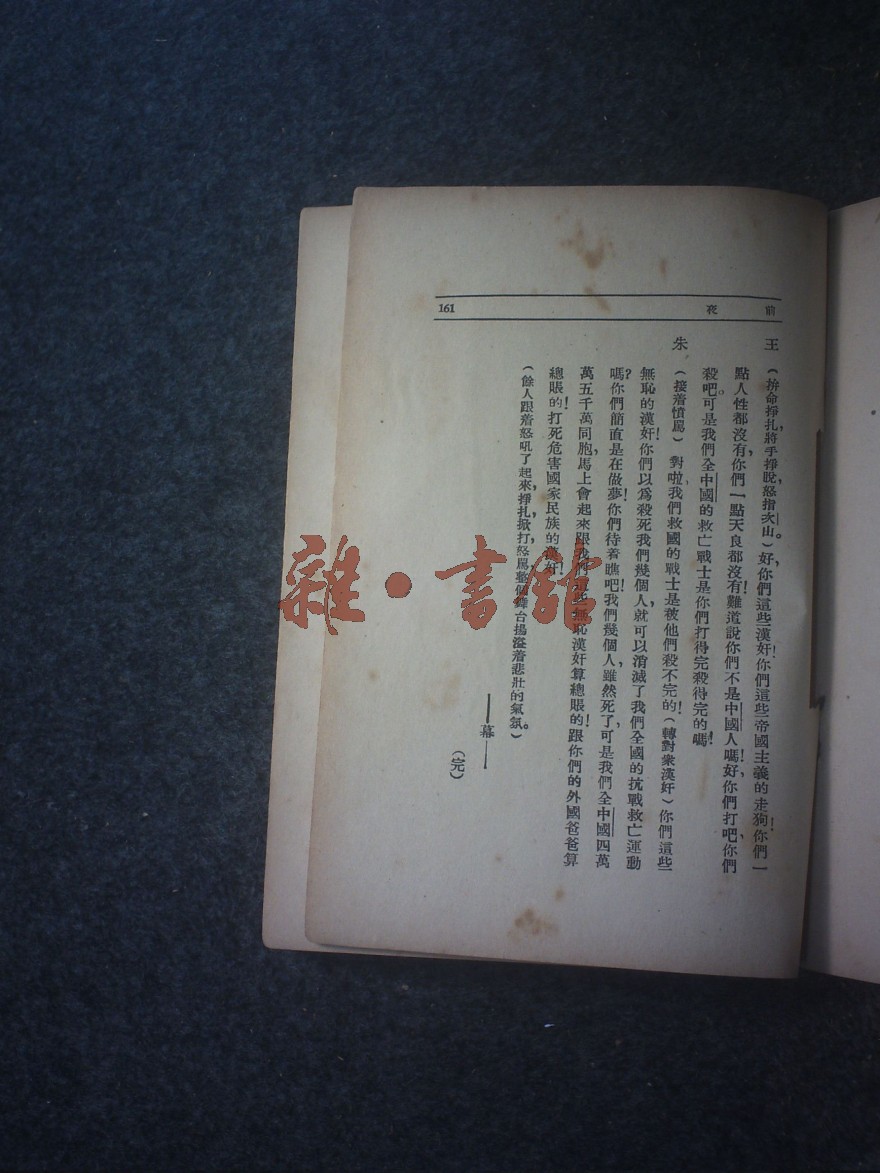 前夜 161
王 (拚命掙扎,將手掙脫,怒指次山。)好,你們這些漢奸!你們這些帝國主義的走狗!你們一
點人性都沒有,你們一點天良都沒有!難道說你們不是中國人嗎!好,你們打吧,你們
殺吧。可是我們全中國的救亡戰士是你們打得完殺得完的嗎!
朱 (接着憤罵)對啦,我們救國的戰士是被他們殺不完的!(轉對衆漢奸)你們這些
無恥的漢奸!你們以爲殺死我們幾個人,就可以消滅了我們全國的抗戰救亡運動
嗎?你們簡直是在做夢!你們待着瞧吧!我們幾個人,雖然死了,可是我們全中國四萬
萬五千萬同胞,馬上會起來跟我們這些無恥漢奸算總賬的!跟你們的外國爸爸算
總賬的!打死危害國家民族的漢奸!
(餘人跟着怒吼了起來,掙扎,掀打,怒罵,整個舞台揚溢着悲壯的氣氛。)
——幕——
(完)
雜·書館